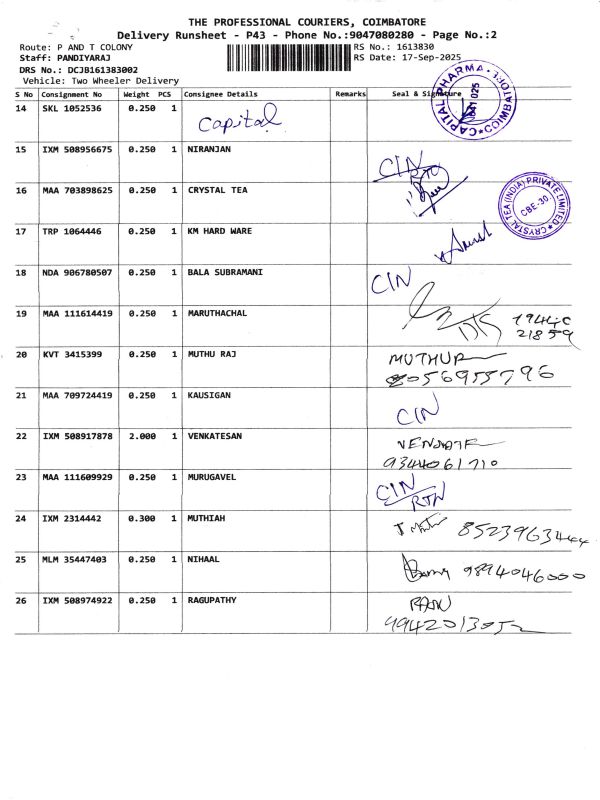 THE PROFESSIONAL COURIERS, COIMBATORE
Delivery Runsheet - P43 - Phone No.:9047080280 - Page No.:2
Route: P AND T COLONY RS No.: 1613830
Staff: PANDIYARAJ RS Date: 17-Sep-2025
DRS No.: DCJB161383002
Vehicle: Two Wheeler Delivery
S No Consignment No Weight PCS Consignee Details Remarks Seal & Signature
14 SKL 1052536 0.250 1 Capital
CAPITAL PHARMA COIMBATORE
15 IXM 508956675 0.250 1 NIRANJAN CIN
RTO
16 MAA 703898625 0.250 1 CRYSTAL TEA
CRYSTAL TEA (INDIA) PRIVATE LIMITED CBE-30
17 TRP 1064446 0.250 1 KM HARD WARE
18 NDA 906780507 0.250 1 BALA SUBRAMANI CIN
19 MAA 111614419 0.250 1 MARUTHACHAL
21859
20 KVT 3415399 0.250 1 MUTHU RAJ MUTHUR
8056955796
21 MAA 709724419 0.250 1 KAUSIGAN CIN
22 IXM 508917878 2.000 1 VENKATESAN
9344061710
23 MAA 111609929 0.250 1 MURUGAVEL CIN
RTN
24 IXM 2314442 0.300 1 MUTHIAH 8523963444
25 MLM 35447403 0.250 1 NIHAAL 9894046000
26 IXM 508974922 0.250 1 RAGUPATHY
9942013052